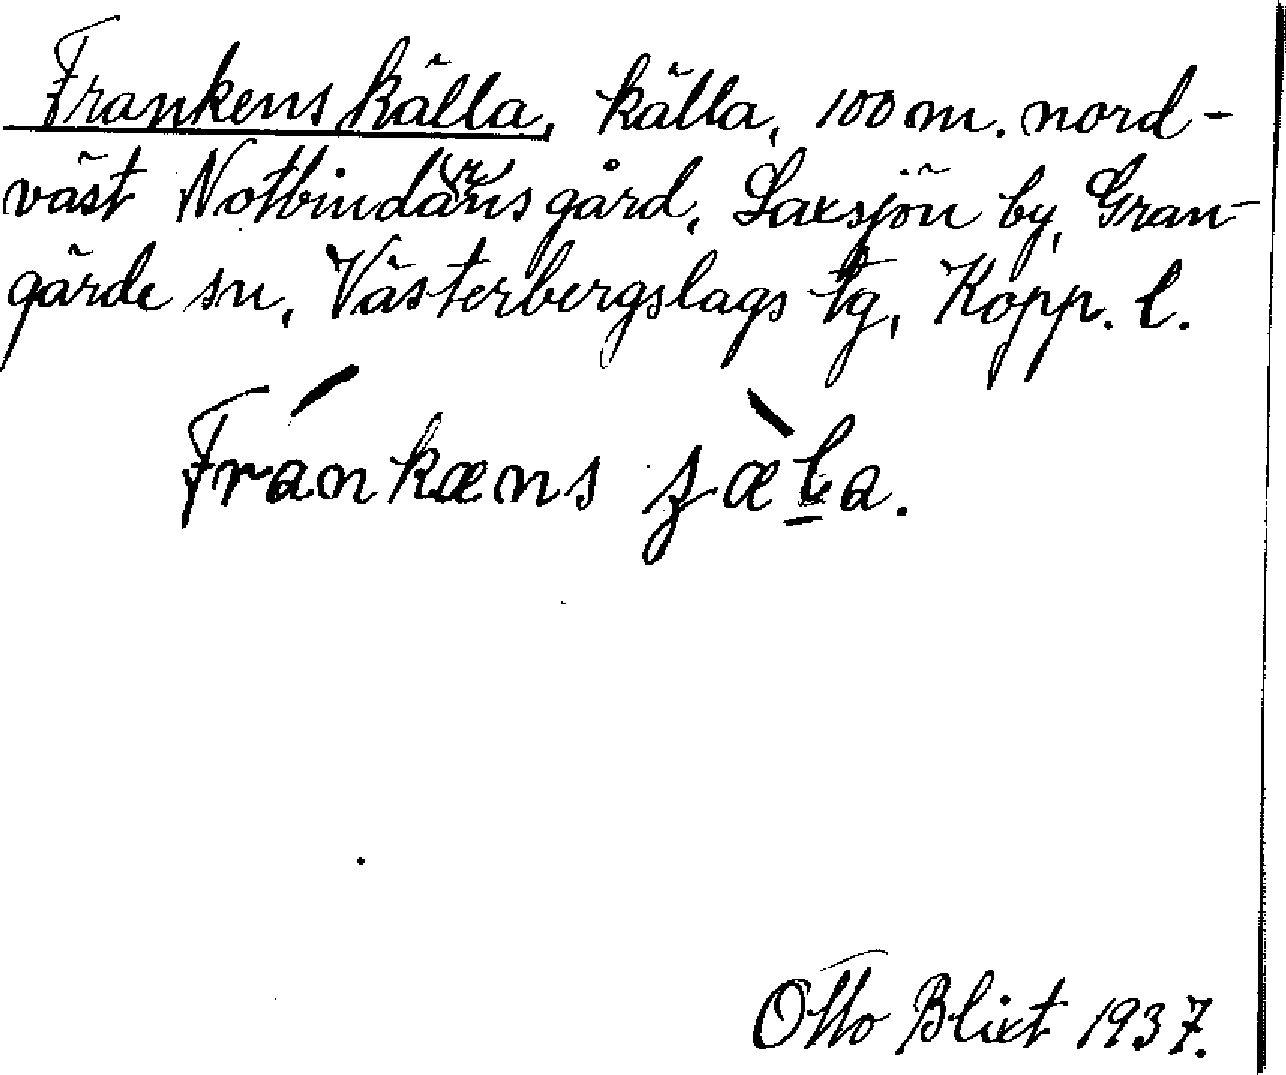 Frankens källa, källa, 100 m. nord-
väst Notbindarns gård, Laxsjön by, Gran-
gärde sn, Västerbergslags tg, Kopp. l.
Fránkæns sæ̀la.
Otto Blixt 1937.